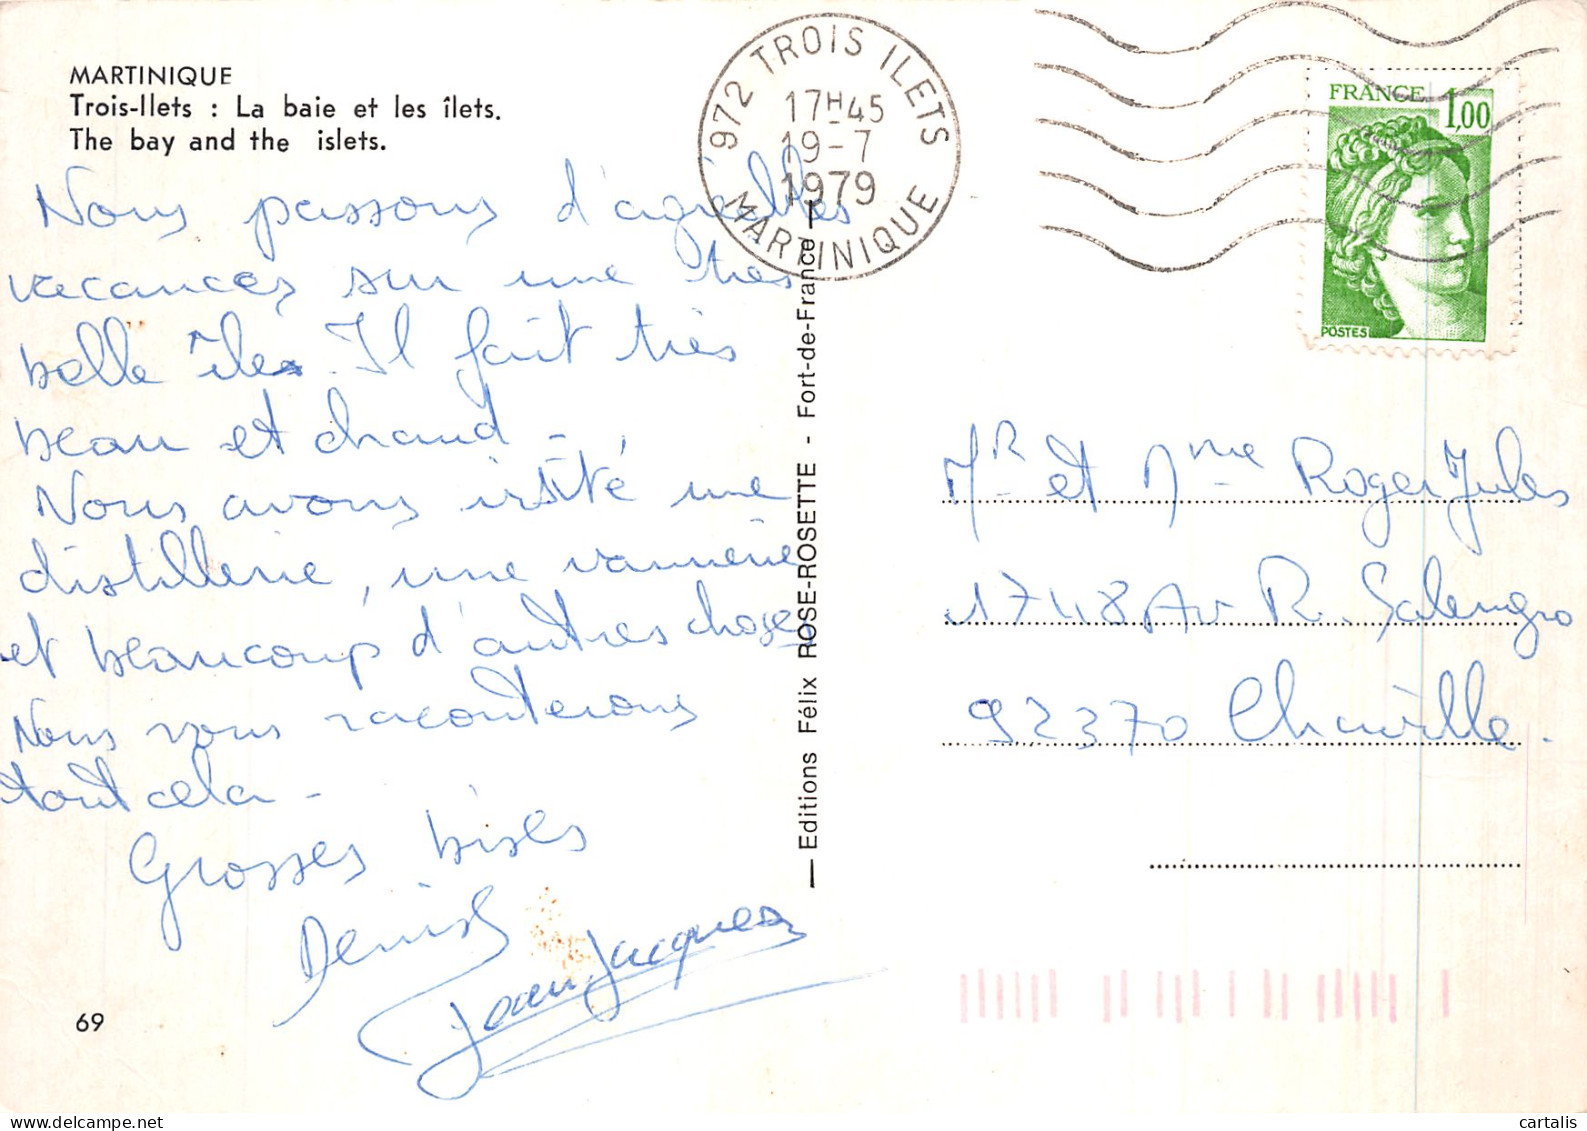 MARTINIQUE
Trois-Ilets : La baie et les îlets.
The bay and the islets.
Nous passons d'agréables
vacances sur une très
belle île. Il fait très
beau et chaud -
Nous avons visité une
distillerie, une vannerie
et beaucoup d'autres choses
Nous vous raconterons
tout cela -
Grosses bises
Denise
Jean Jacques
69
Editions Félix ROSE-ROSETTE - Fort-de-France
972 TROIS ILETS
17H45
19-7
1979
MARTINIQUE
FRANCE 1,00
POSTES
Mr et Mme Roger Jules
1748 Av R. Salengro
92370 Chaville.
cartalis